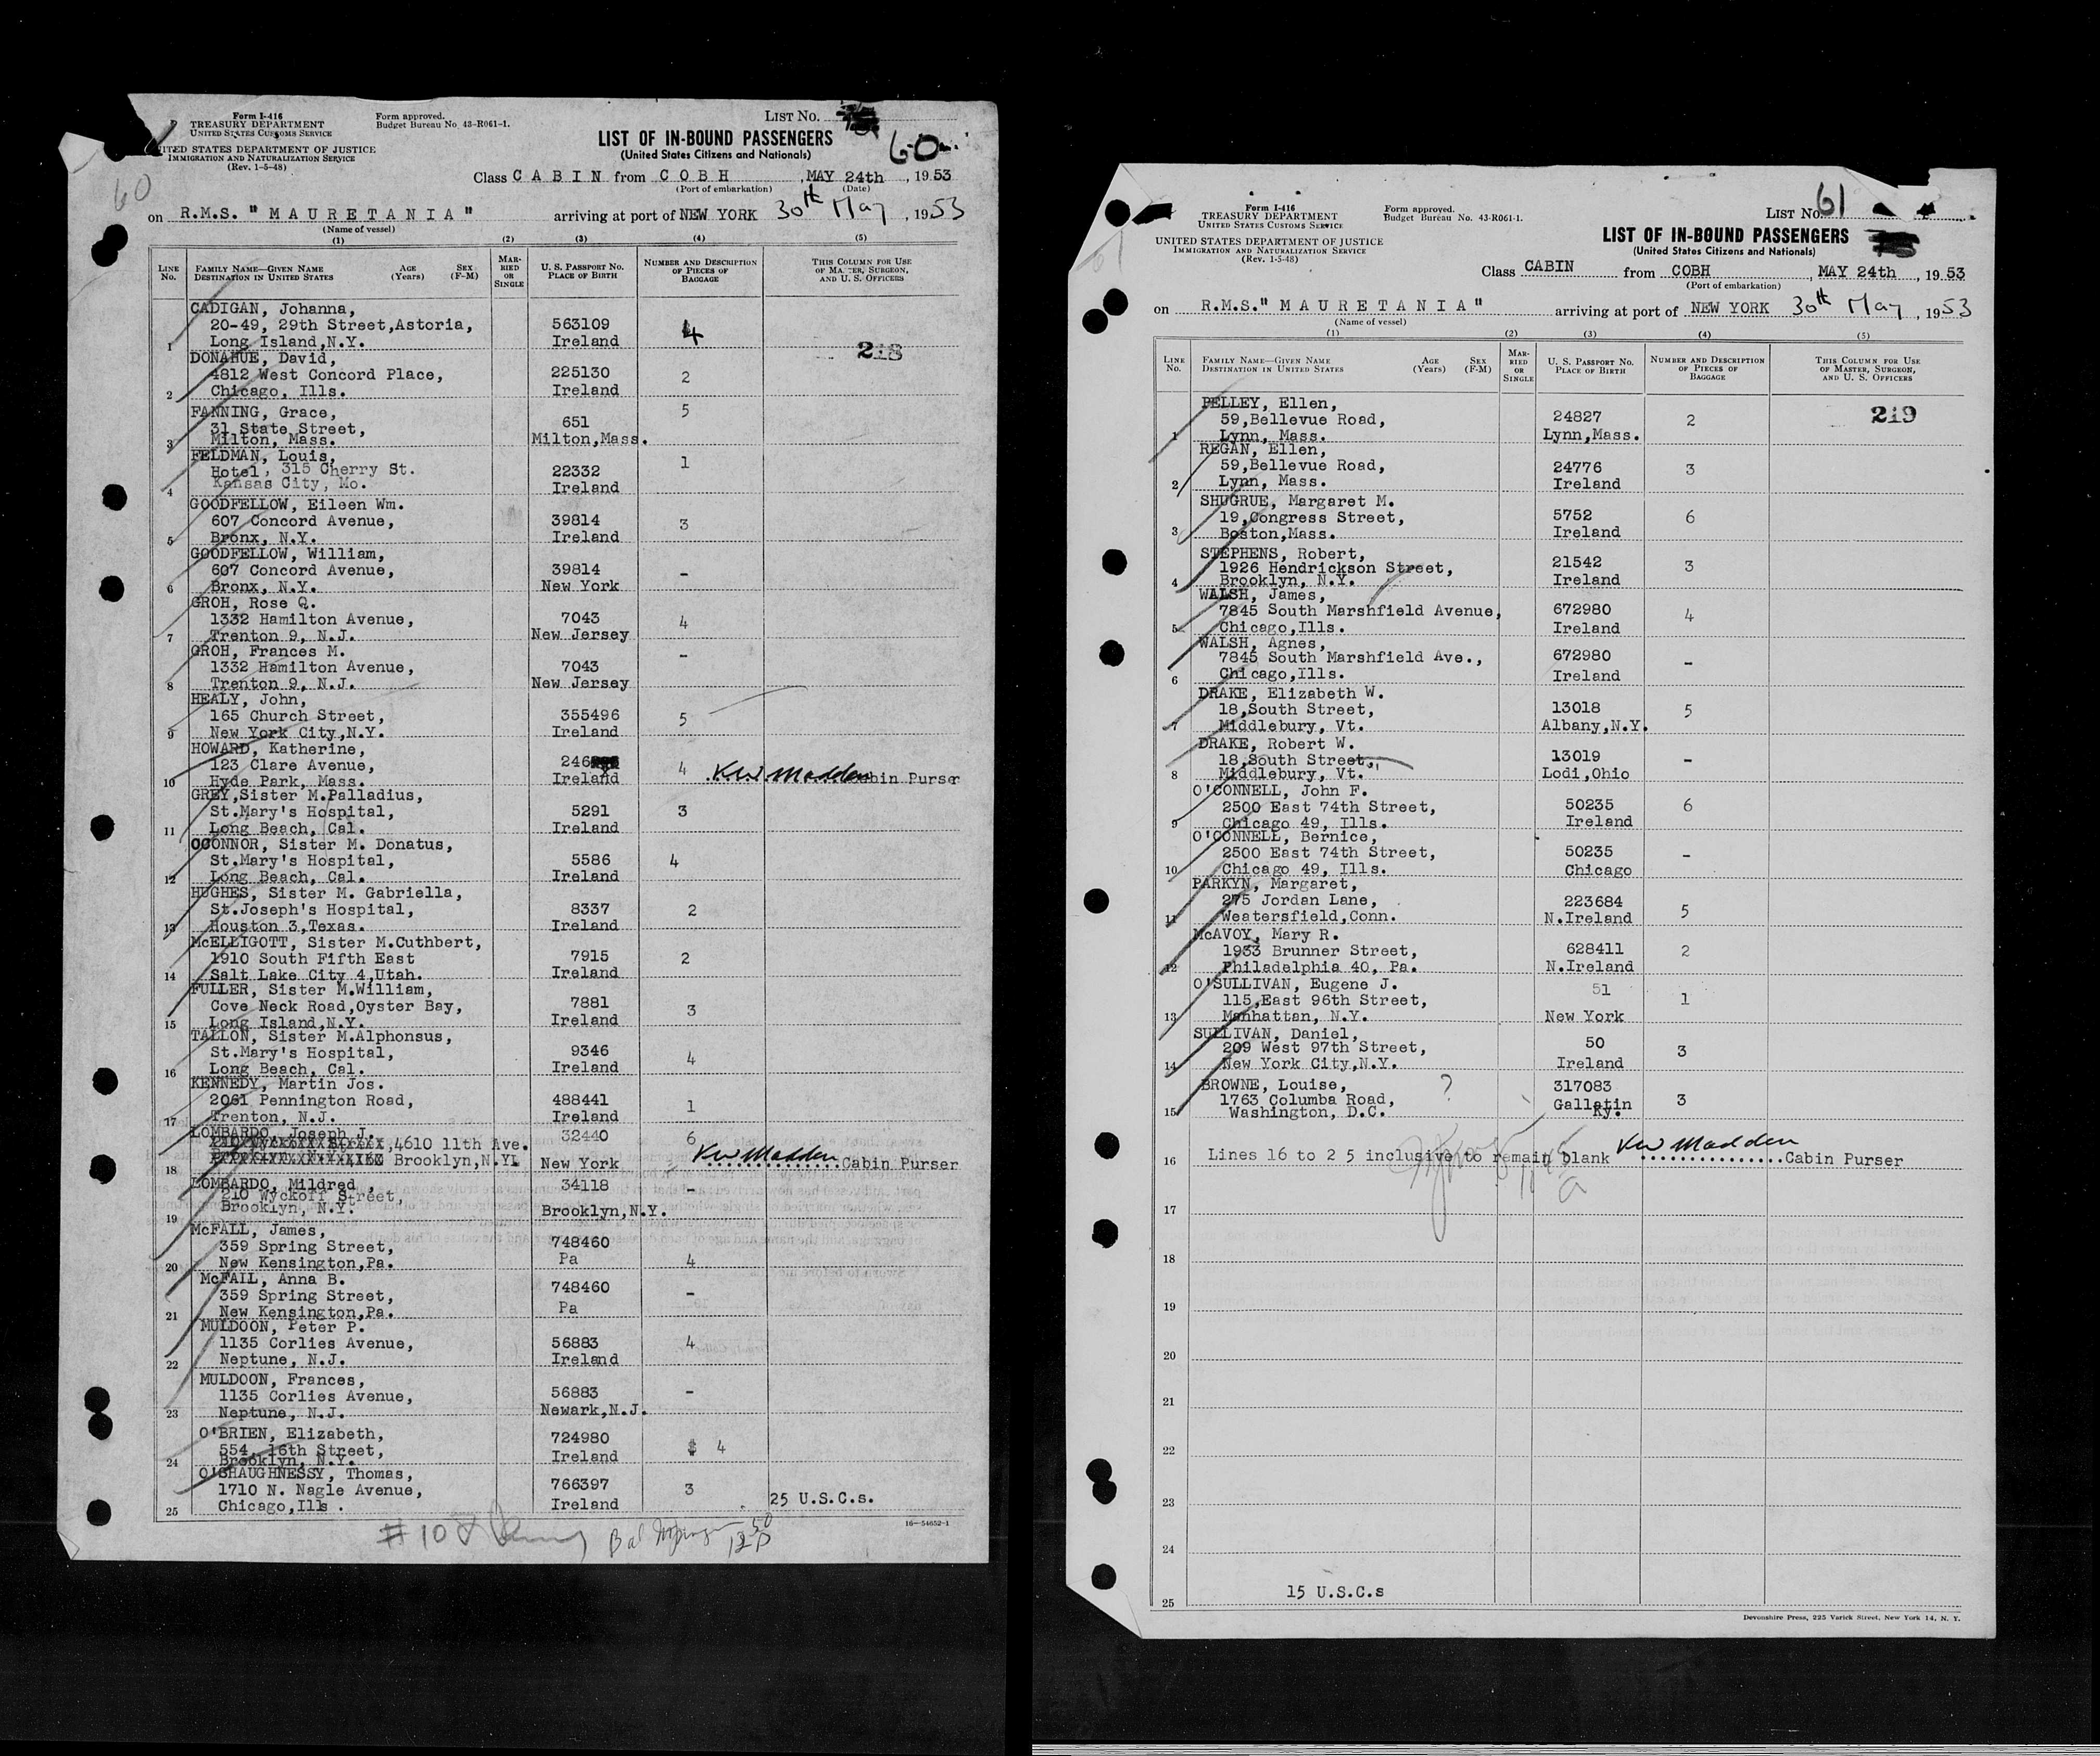 Form I-416
TREASURY DEPARTMENT
UNITED STATES CUSTOMS SERVICE
UNITED STATES DEPARTMENT OF JUSTICE
IMMIGRATION AND NATURALIZATION SERVICE
(Rev. 1-5-48)
Form approved.
Budget Bureau No. 43-R061-1.
LIST NO.
60
60
LIST OF IN-BOUND PASSENGERS
(United States Citizens and Nationals)
Class C A B I N from C O B H , MAY 24th , 1953
(Port of embarkation) (Date)
on R.M.S. " M A U R E T A N I A " arriving at port of NEW YORK 30th May , 1953
(Name of vessel)
(1) (2) (3) (4) (5)
LINE No. FAMILY NAME—GIVEN NAME DESTINATION IN UNITED STATES AGE (Years) SEX (F-M) MARRIED OR SINGLE U. S. PASSPORT NO. PLACE OF BIRTH NUMBER AND DESCRIPTION OF PIECES OF BAGGAGE THIS COLUMN FOR USE OF MASTER, SURGEON, AND U. S. OFFICERS
CADIGAN, Johanna,
20-49, 29th Street,Astoria, 563109 4
1 Long Island,N.Y. Ireland 218
DONAHUE, David,
4812 West Concord Place, 225130 2
2 Chicago, Ills. Ireland
FANNING, Grace, 5
31 State Street, 651
3 Milton, Mass. Milton,Mass.
FELDMAN, Louis, 1
Hotel, 315 Cherry St. 22332
4 Kansas City, Mo. Ireland
GOODFELLOW, Eileen Wm.
607 Concord Avenue, 39814 3
5 Bronx, N.Y. Ireland
GOODFELLOW, William,
607 Concord Avenue, 39814 -
6 Bronx, N.Y. New York
GROH, Rose Q.
1332 Hamilton Avenue, 7043 4
7 Trenton 9, N.J. New Jersey
GROH, Frances M. -
1332 Hamilton Avenue, 7043
8 Trenton 9, N.J. New Jersey
HEALY, John,
165 Church Street, 355496 5
9 New York City,N.Y. Ireland
HOWARD, Katherine,
123 Clare Avenue, 246 4
10 Hyde Park, Mass. Ireland KW Madden Cabin Purser
GREY,Sister M.Palladius,
St.Mary's Hospital, 5291 3
11 Long Beach, Cal. Ireland
OCONNOR, Sister M. Donatus,
St.Mary's Hospital, 5586 4
12 Long Beach, Cal. Ireland
HUGHES, Sister M. Gabriella,
St.Joseph's Hospital, 8337 2
13 Houston 3,Texas. Ireland
McELLIGOTT, Sister M.Cuthbert,
1910 South Fifth East 7915 2
14 Salt Lake City 4,Utah. Ireland
FULLER, Sister M.William,
Cove Neck Road,Oyster Bay, 7881 3
15 Long Island,N.Y. Ireland
TALLON, Sister M.Alphonsus,
St.Mary's Hospital, 9346 4
16 Long Beach, Cal. Ireland
KENNEDY, Martin Jos.
2061 Pennington Road, 488441 1
17 Trenton, N.J. Ireland
LOMBARDO, Joseph J. 32440 6
4610 11th Ave.
18 Brooklyn,N.Y. New York KW Madden Cabin Purser
LOMBARDO, Mildred, 34118 -
210 Wyckoff Street,
19 Brooklyn, N.Y. Brooklyn,N.Y.
McFALL, James,
359 Spring Street, 748460
20 New Kensington,Pa. Pa 4
McFAIL, Anna B.
359 Spring Street, 748460 -
21 New Kensington,Pa. Pa
MULDOON, Peter P.
1135 Corlies Avenue, 56883 4
22 Neptune, N.J. Ireland
MULDOON, Frances,
1135 Corlies Avenue, 56883 -
23 Neptune, N.J. Newark,N.J.
O'BRIEN, Elizabeth,
554, 16th Street, 724980 4
24 Brooklyn, N.Y. Ireland
O'SHAUGHNESSY, Thomas,
1710 N. Nagle Avenue, 766397 3
25 Chicago,Ills. Ireland 25 U.S.C.s.
16—54652-1
#10
Form I-416
TREASURY DEPARTMENT
UNITED STATES CUSTOMS SERVICE
UNITED STATES DEPARTMENT OF JUSTICE
IMMIGRATION AND NATURALIZATION SERVICE
(Rev. 1-5-48)
Form approved.
Budget Bureau No. 43-R061-1.
LIST NO. 61
61
LIST OF IN-BOUND PASSENGERS
(United States Citizens and Nationals)
Class CABIN from COBH , MAY 24th , 1953
(Port of embarkation)
on R.M.S." M A U R E T A N I A " arriving at port of NEW YORK 30th May , 1953
(Name of vessel)
(1) (2) (3) (4) (5)
LINE No. FAMILY NAME—GIVEN NAME DESTINATION IN UNITED STATES AGE (Years) SEX (F-M) MARRIED OR SINGLE U. S. PASSPORT NO. PLACE OF BIRTH NUMBER AND DESCRIPTION OF PIECES OF BAGGAGE THIS COLUMN FOR USE OF MASTER, SURGEON, AND U. S. OFFICERS
PELLEY, Ellen,
59,Bellevue Road, 24827 2 219
1 Lynn, Mass. Lynn,Mass.
REGAN, Ellen,
59,Bellevue Road, 24776 3
2 Lynn, Mass. Ireland
SHUGRUE, Margaret M.
19,Congress Street, 5752 6
3 Boston,Mass. Ireland
STEPHENS, Robert,
1926 Hendrickson Street, 21542 3
4 Brooklyn, N.Y. Ireland
WALSH, James,
7845 South Marshfield Avenue, 672980 4
5 Chicago,Ills. Ireland
WALSH, Agnes,
7845 South Marshfield Ave., 672980 -
6 Chicago,Ills. Ireland
DRAKE, Elizabeth W.
18,South Street, 13018 5
7 Middlebury, Vt. Albany,N.Y.
DRAKE, Robert W.
18,South Street, 13019 -
8 Middlebury, Vt. Lodi,Ohio
O'CONNELL, John F.
2500 East 74th Street, 50235 6
9 Chicago 49, Ills. Ireland
O'CONNELL, Bernice,
2500 East 74th Street, 50235 -
10 Chicago 49, Ills. Chicago
PARKYN, Margaret,
275 Jordan Lane, 223684 5
11 Weatersfield,Conn. N.Ireland
McAVOY, Mary R.
1933 Brunner Street, 628411 2
12 Philadelphia 40, Pa. N.Ireland
O'SULLIVAN, Eugene J. 51
115,East 96th Street, 1
13 Manhattan, N.Y. New York
SULLIVAN, Daniel,
209 West 97th Street, 50 3
14 New York City,N.Y. Ireland
BROWNE, Louise, ? 317083
1763 Columba Road, Gallatin 3
15 Washington, D.C. Ky.
16 Lines 16 to 2 5 inclusive to remain blank KW Madden Cabin Purser
17
18
19
20
21
22
23
24
15 U.S.C.s
25
Devonshire Press, 225 Varick Street, New York 14, N. Y.